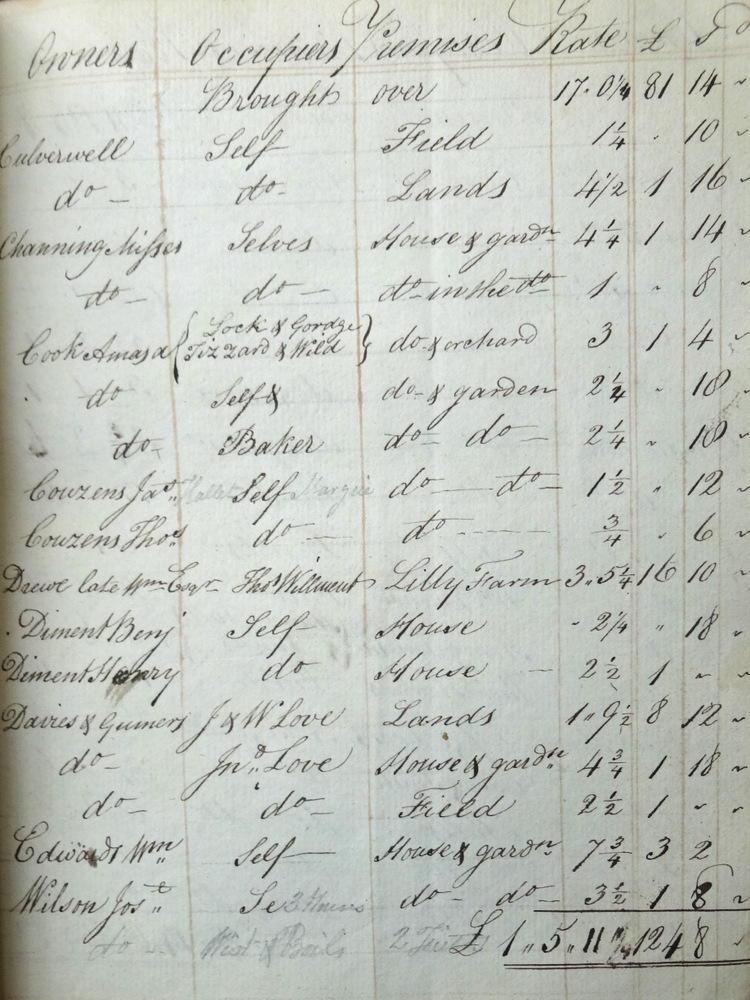 Owners Occupiers Premises Rate £ S d
Brought over 17. 0¼ 81 14 "
Culverwell Self Field 1¼ " 10 "
do do Lands 4½ 1 16 "
Channing Misses Selves House & gardn 4¼ 1 14 "
do do do in the do 1 " 8 "
Cook Amasa { Lock & Gordge Tizzard & Wild } do & orchard 3 1 4 "
do Self & do & garden 2¼ " 18 "
do Baker do do 2¼ " 18 "
Couzens Jas Self do do 1½ " 12 "
Couzens Thos do do ¾ " 6 "
Drewe late Wm Esqr Thos Willment Lilly Farm 3 " 5¼ 16 10 "
Diment Benj Self House " 2¼ " 18 "
Diment Henry do House 2½ 1 " "
Davies & Gumers J & W Love Lands 1 " 9½ 8 12 "
do Jno Love House & gardn 4¾ 1 18 "
do do Field 2½ 1 " "
Edwards Wm Self House & gardn 7¾ 3 2
Wilson Jost Se do do 3½ 1 8 "
do £ 1 " 5 " 11 124 8 "